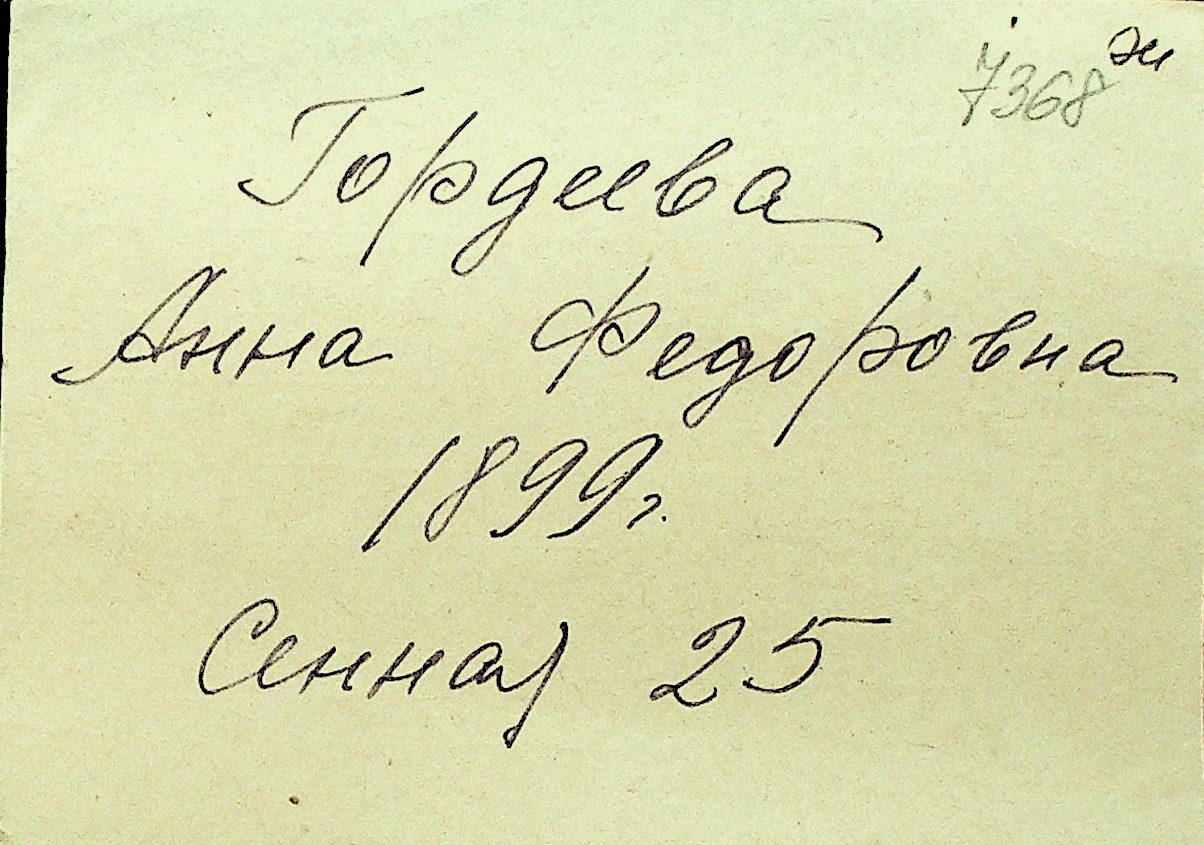 7368 ж
Гордеева
Анна Федоровна
1899г.
Сенная 25